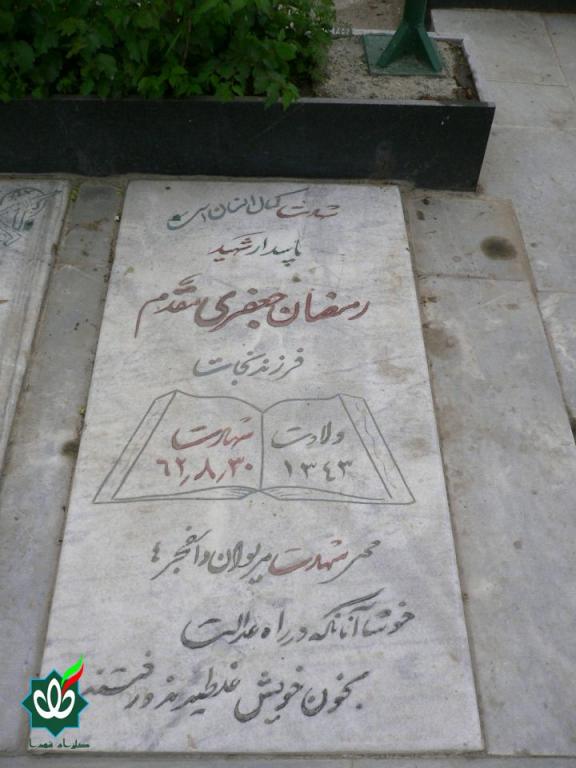 شهادت کمال انسان است
پاسدار شهید
رمضان جعفری مقدم
فرزند نجات
ولادت
۱۳۴۳
شهادت
۶۲٫۸٫۳۰
محل شهادت مریوان والفجر ۴
خوشا آنانکه در راه عدالت
بخون خویش غلطیدند و رفتند
گلزار شهدا